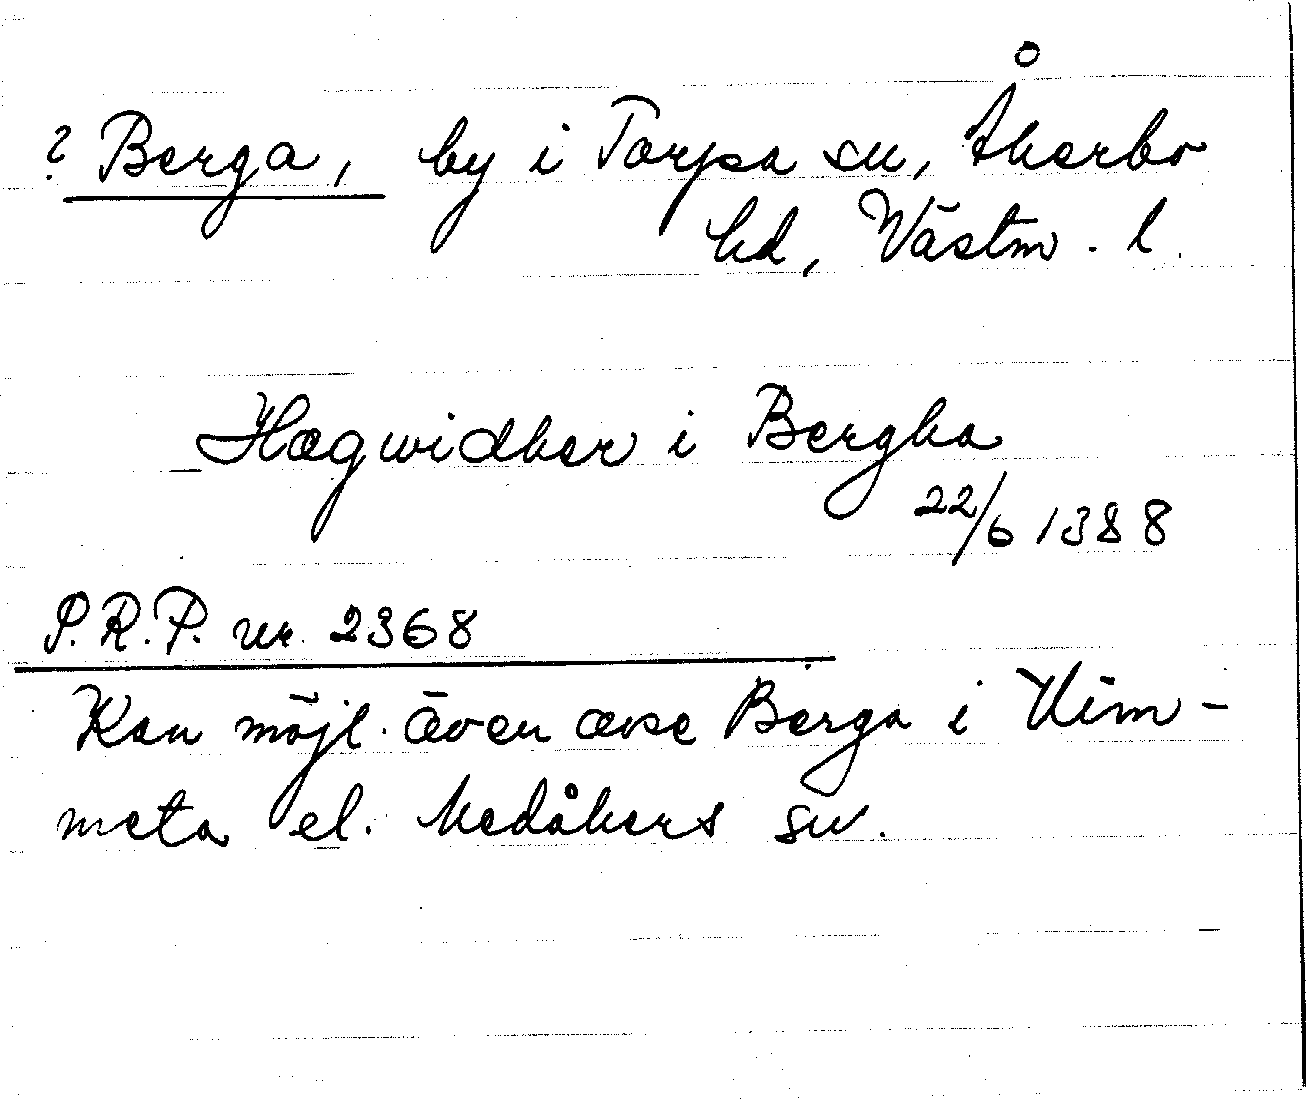 ? Berga, by i Torpa sn, Åkerbo
hd, Västm. l.
Hægwidher i Bergha
22/6 1388
P.R.P. nr. 2368
Kan möjl. även avse Berga i Him-
meta el. Medåkers sn.